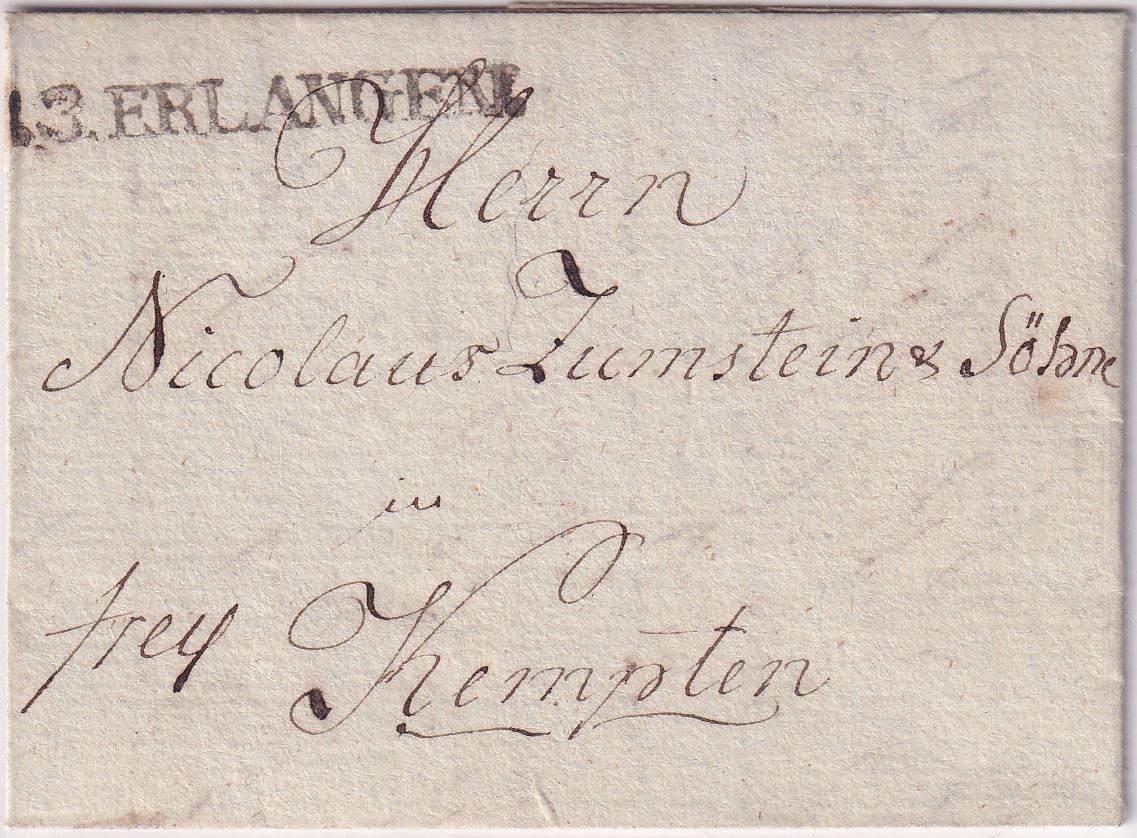 R.3.ERLANGEN.
Herrn
Nicolaus Zumstein & Söhne
in
frey Kempten